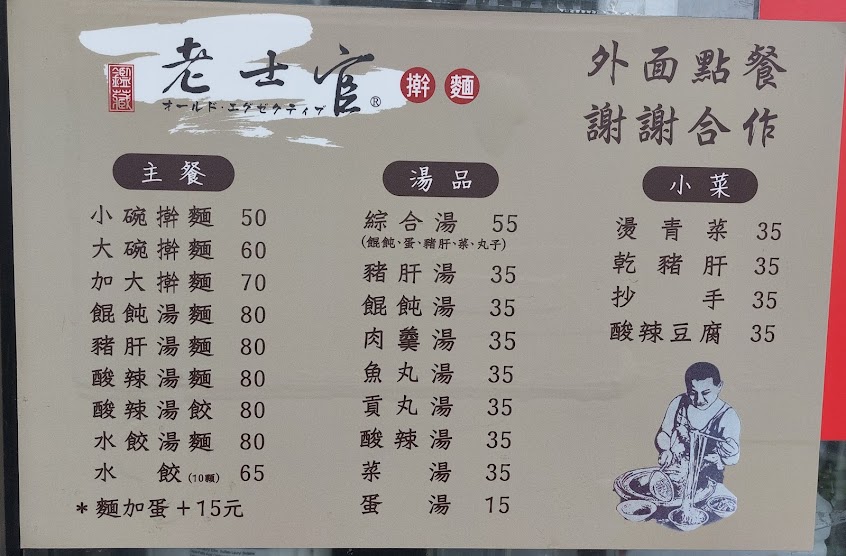 鑑藏
老士官®
オールド·エグゼクティブ
擀麵
外面點餐
謝謝合作
主餐
小碗擀麵 50
大碗擀麵 60
加大擀麵 70
餛飩湯麵 80
豬肝湯麵 80
酸辣湯麵 80
酸辣湯餃 80
水餃湯麵 80
水餃(10顆) 65
*麵加蛋+15元
湯品
綜合湯 55
(餛飩、蛋、豬肝、菜、丸子)
豬肝湯 35
餛飩湯 35
肉羹湯 35
魚丸湯 35
貢丸湯 35
酸辣湯 35
菜湯 35
蛋湯 15
小菜
燙青菜 35
乾豬肝 35
抄手 35
酸辣豆腐 35